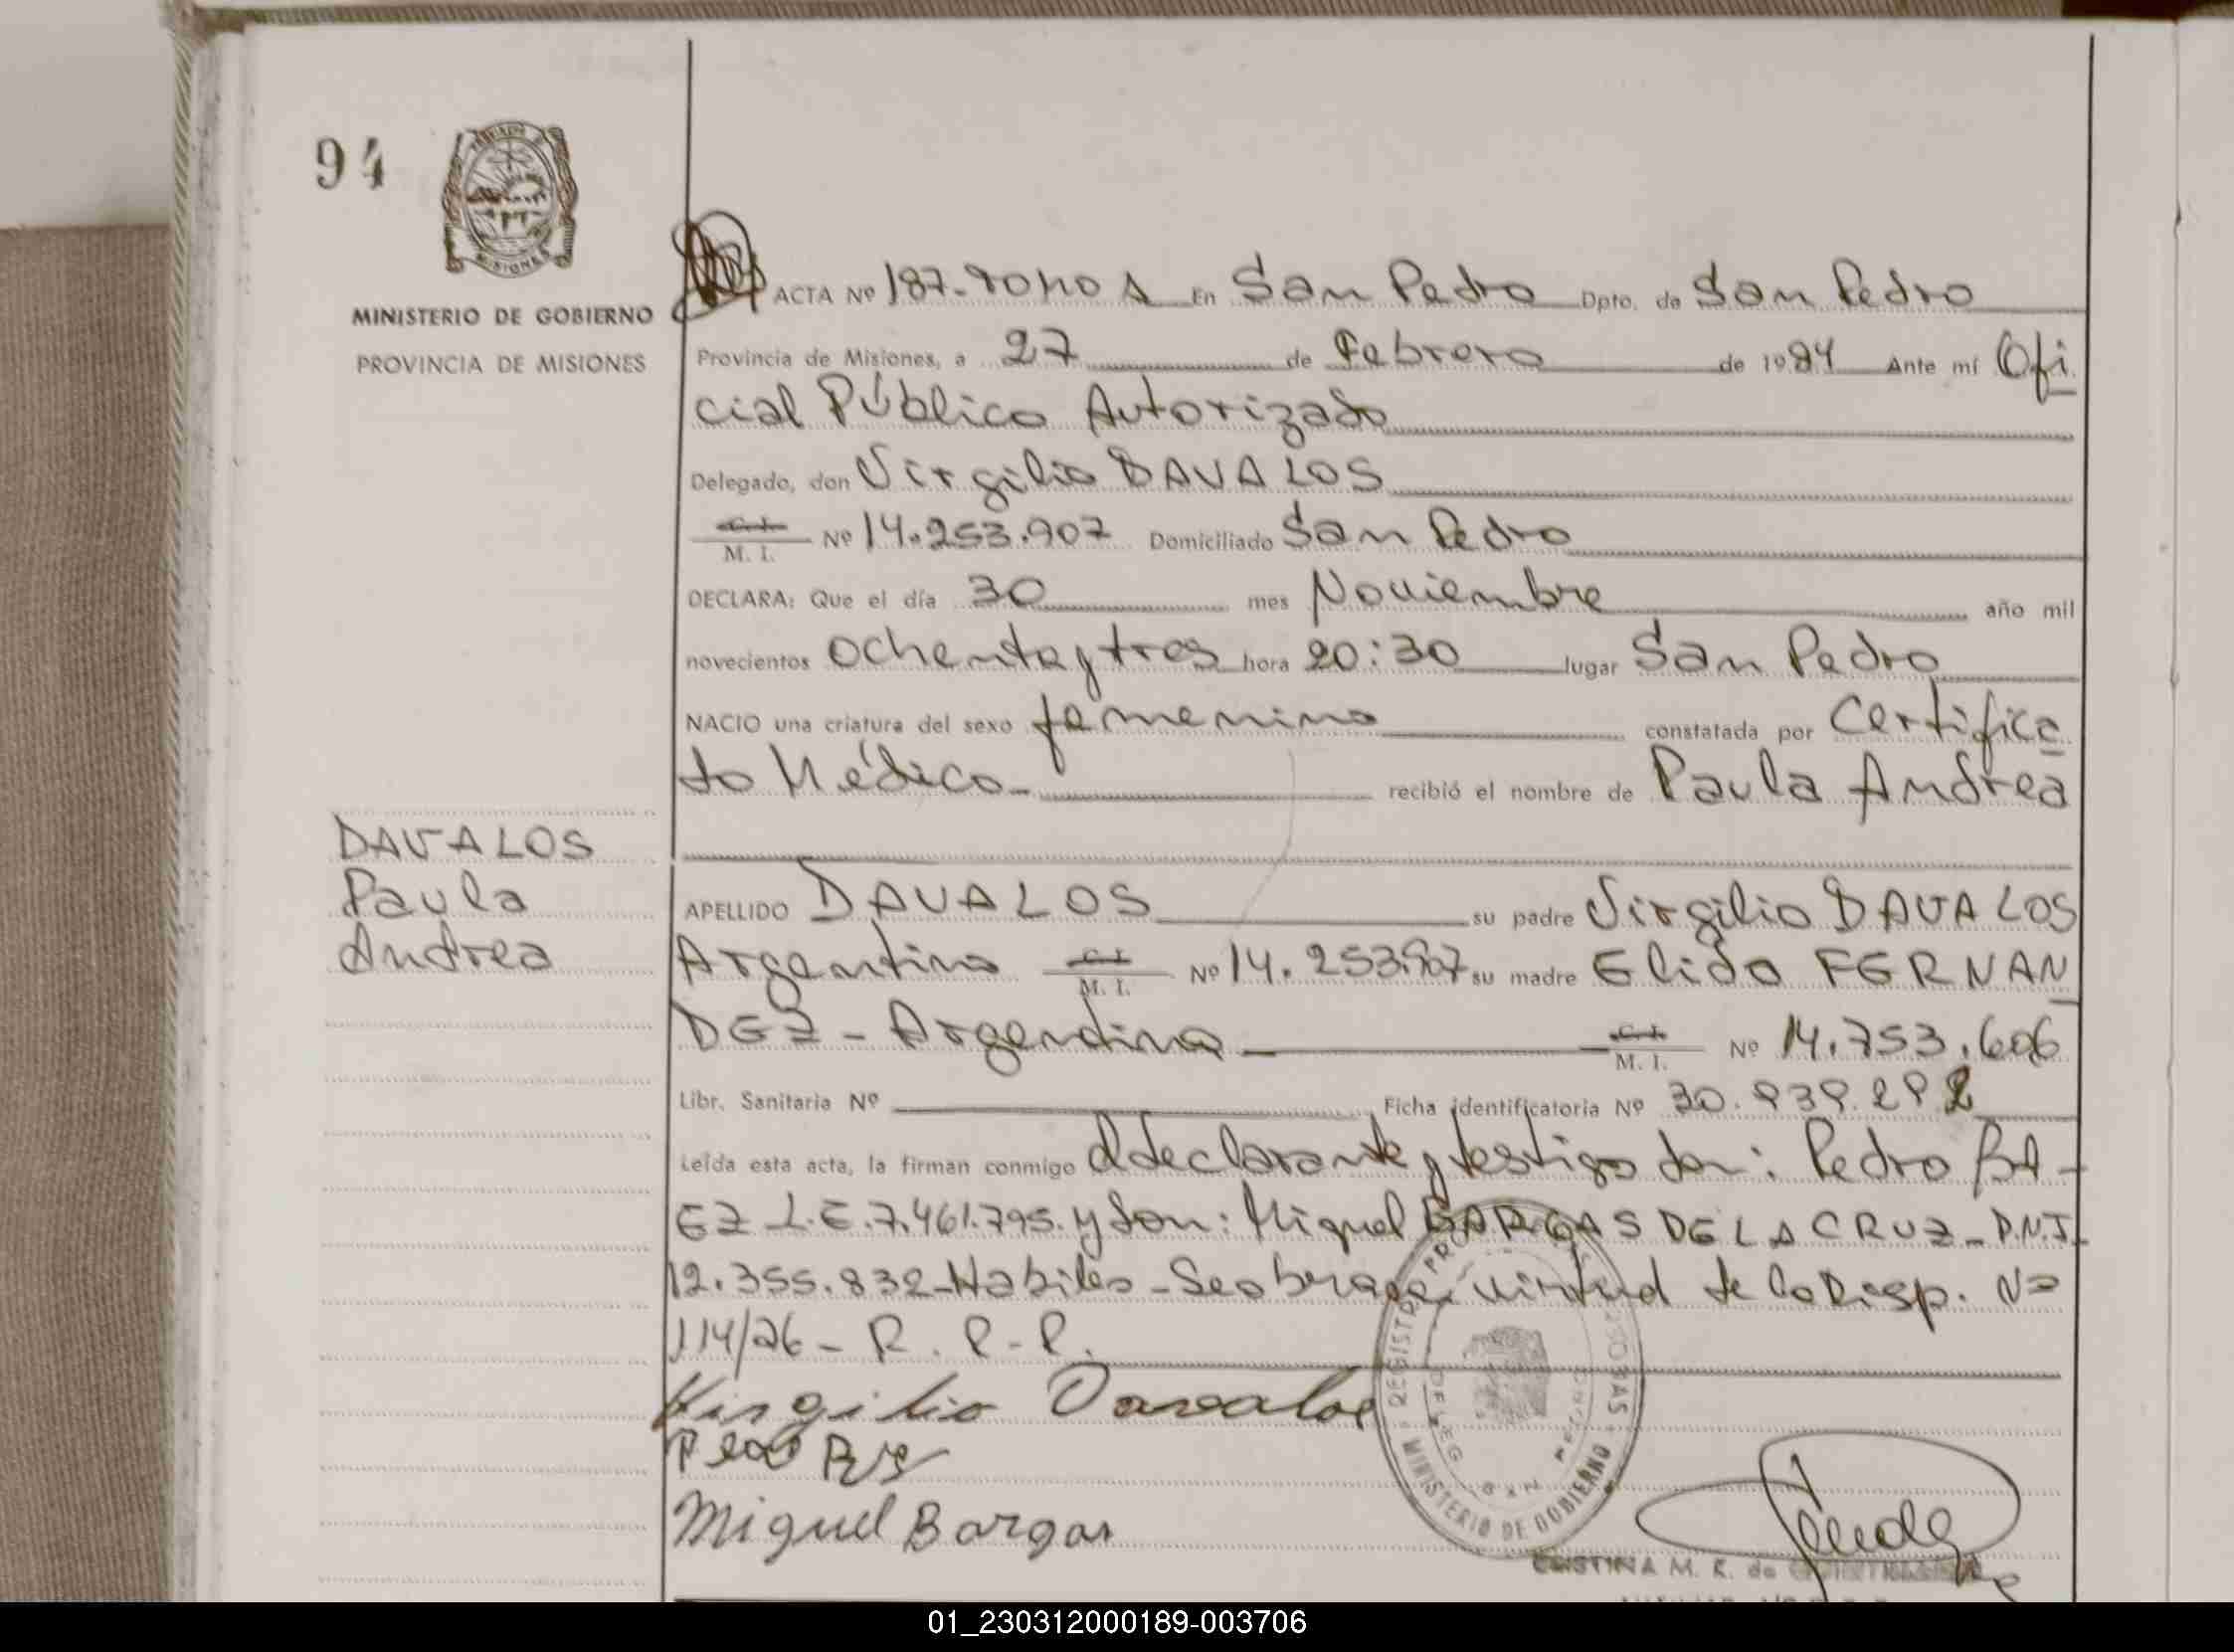 94
MISIONES
MINISTERIO DE GOBIERNO
PROVINCIA DE MISIONES
ACTA Nº 187-Tomo A En San Pedro Dpto. de San Pedro
Provincia de Misiones, a 27 de Febrero de 1984 Ante mí Ofi
cial Público Autorizado
Delegado, don Virgilio DAVALOS
C. I. M. I. Nº 14.253.907 Domiciliado San Pedro
DECLARA: Que el día 30 mes Noviembre año mil
novecientos ochenta y tres hora 20:30 lugar San Pedro
NACIO una criatura del sexo femenino constatada por Certifica
to Médico- recibió el nombre de Paula Andrea
DAVALOS
Paula
Andrea
APELLIDO DAVALOS su padre Virgilio DAVALOS
Argentino C. I. M. I. Nº 14.253.907 su madre Elida FERNAN
DEZ - Argentina C. I. M. I. Nº 14.753.606
Libr. Sanitaria Nº Ficha identificatoria Nº 30.939.292
Leída esta acta, la firman conmigo el declarante y testigo don: Pedro
EZ L.E. 7.461.795. y don: Miguel BARGAS DE LA CRUZ - D.N.I.
12.355.832-Habiles - en virtud de la Disp. Nº
114/76 - R. P. P.
Virgilio Davalos
Miguel Bargas
REGISTRO PROV. DE LAS PERSONAS
MINISTERIO DE GOBIERNO
SAN PEDRO
CRISTINA M. K. de
01_230312000189-003706